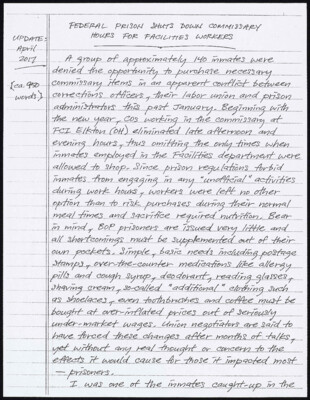 FEDERAL PRISON SHUTS DOWN COMMISSARY
HOURS FOR FACILITIES WORKERS
UPDATE:
April
2017
[ca. 950
words]
A group of approximately 140 inmates were
denied the opportunity to purchase necessary
commissary items in an apparent conflict between
corrections officers, their labor union and prison
administrators this past January. Beginning with
the new year, COs working in the commissary at
FCI Elkton (OH) eliminated late afternoon and
evening hours, thus omitting the only times when
inmates employed in the Facilities department were
allowed to shop. Since prison regulations forbid
inmates from engaging in any "unofficial" activities
during work hours, workers were left no other
option than to risk purchases during their normal
meal times and sacrifice required nutrition. Bear
in mind, BOP prisoners are issued very little and
all shortcomings must be supplemented out of their
own pockets. Simple, basic needs including postage
stamps, over-the-counter medications like allergy
pills and cough syrup, deodorant, reading glasses,
shaving cream, so-called "additional" clothing such
as shoelaces, even toothbrushes and coffee must be
bought at over-inflated prices out of seriously
under-market wages. Union negotiators are said to
have forced these changes after months of talks,
yet without any real thought or concern to the
effects it would cause for those it impacted most
— prisoners.
I was one of the inmates caught-up in the